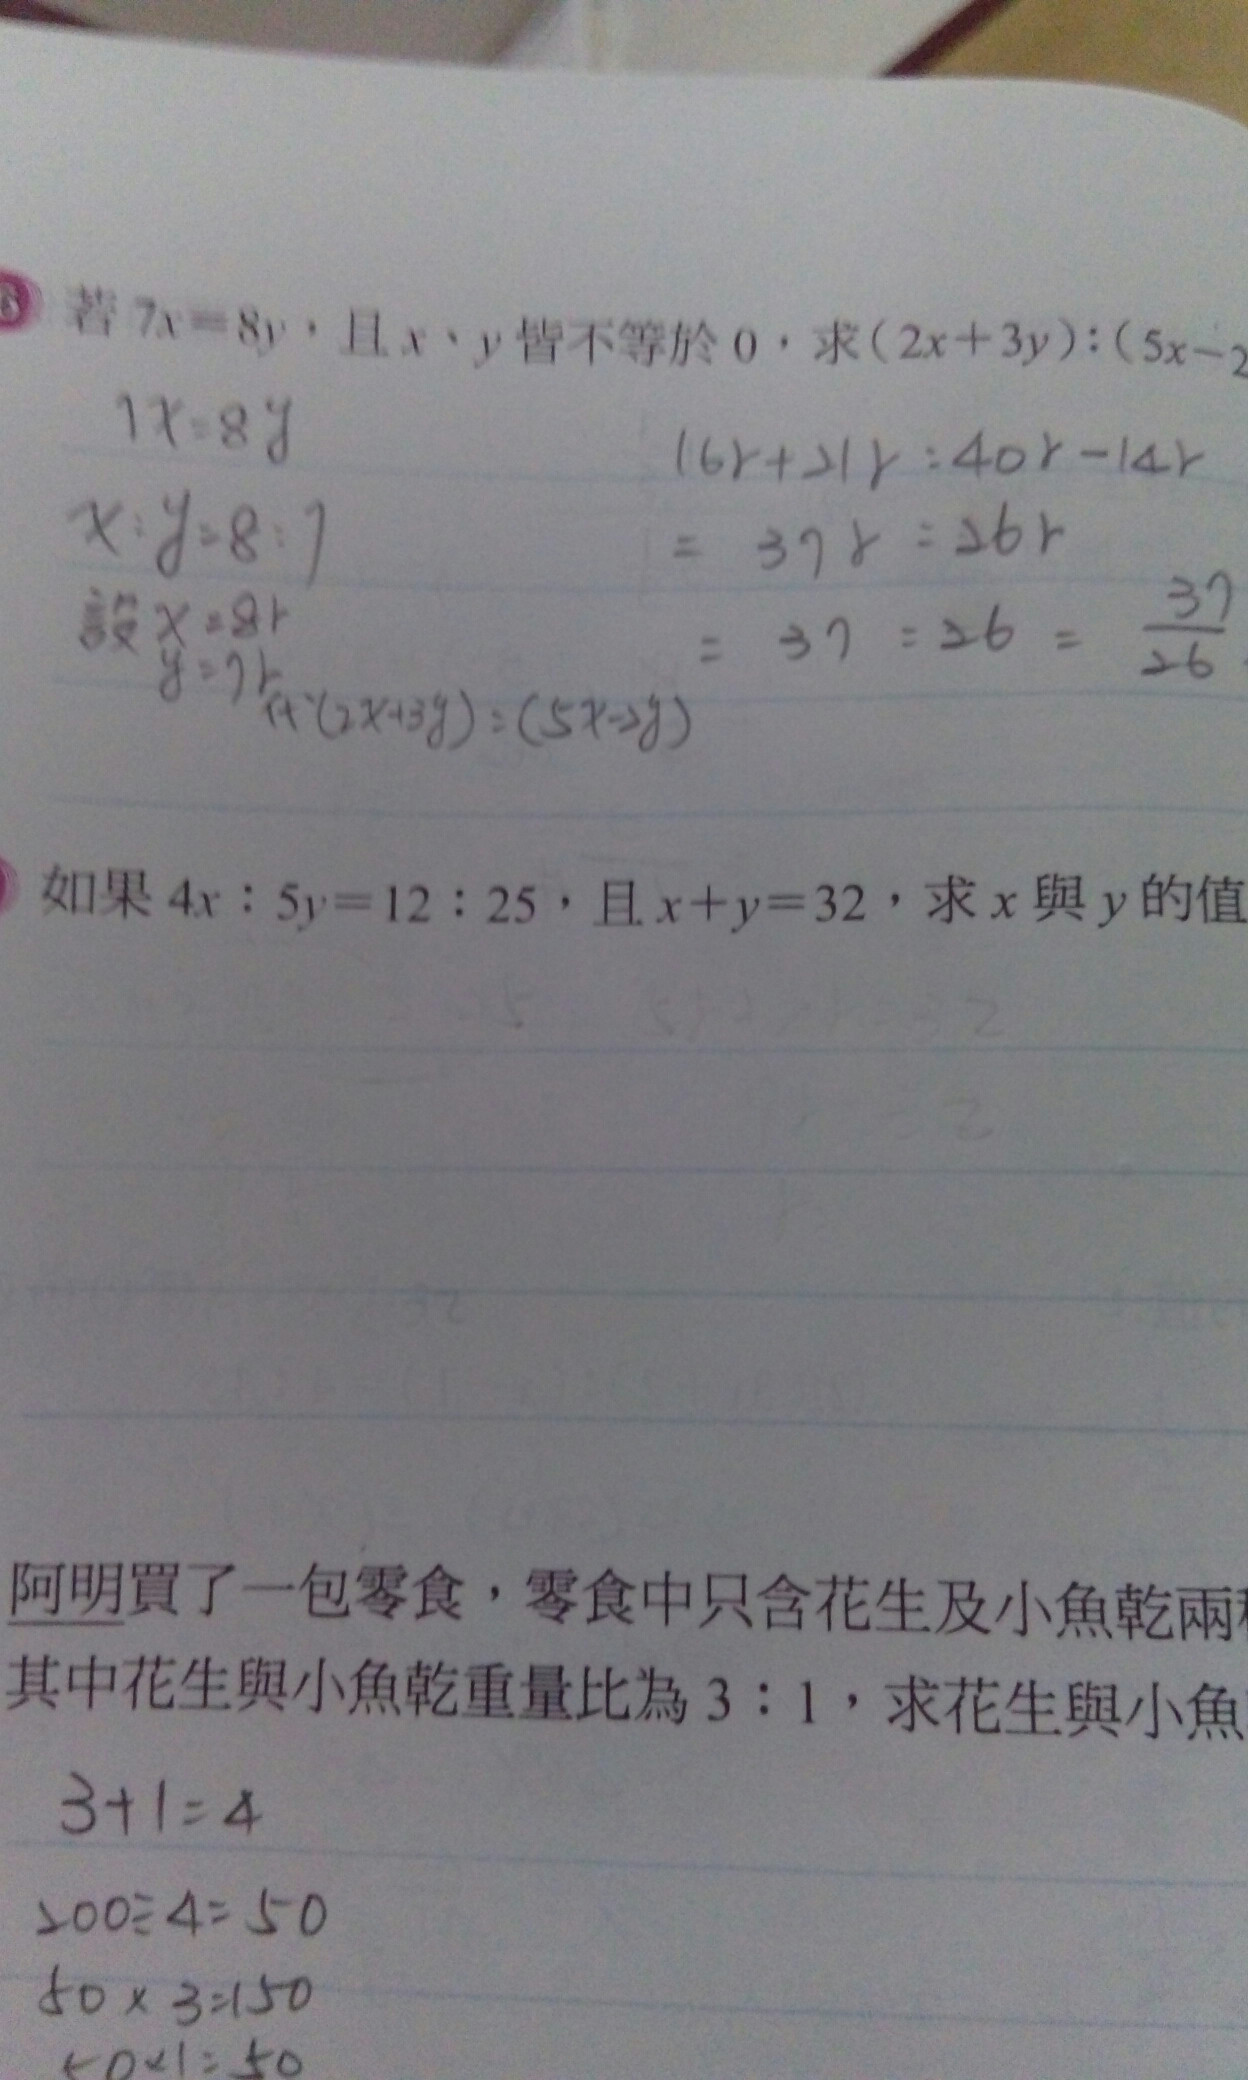 6 若 7x=8y，且 x、y 皆不等於 0，求(2x+3y):(5x-2
7x=8y
x:y=8:7
設 x=8r
y=7r
(2x+3y):(5x-2y)
16r+21r:40r-14r
= 37r:26r
= 37:26 = 37/26
如果 4x：5y=12：25，且 x+y=32，求 x 與 y 的值
阿明買了一包零食，零食中只含花生及小魚乾兩
其中花生與小魚乾重量比為 3：1，求花生與小魚
3+1=4
200÷4=50
50×3=150
50×1=50